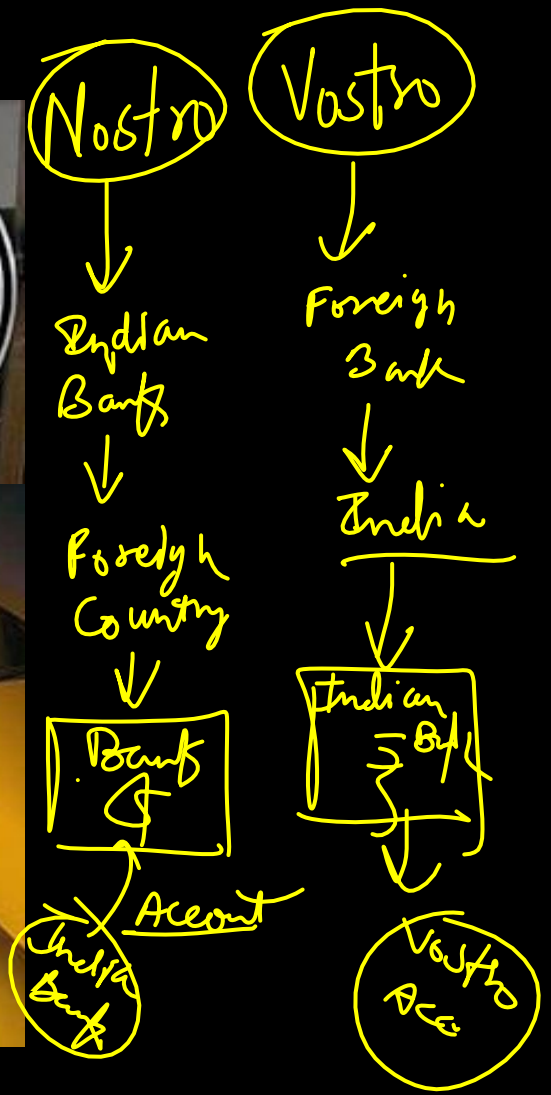 Nostro
Indian
Bank
Foreign
Country
Bank
$
Account
India
Bank
Vostro
Foreign
Bank
India
Indian
Bank
Vostro
Acc